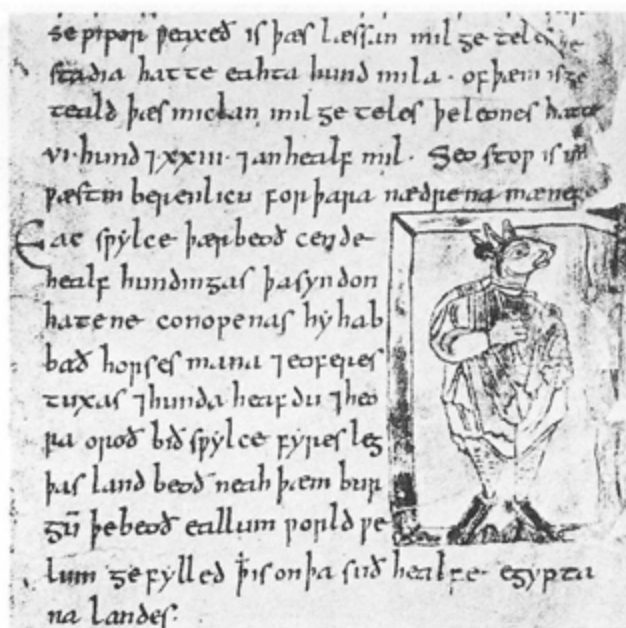 se pipor ƿeaxeð is þæs læssan mil ge teles þe
stadia hatte eahta hund mila · of þæm is ge
teald þæs miclan mil ge teles þe leones hatte
vi · hund ⁊ xxiii · ⁊ an healf mil · Seo stoƿ is
ƿæstm berenlicu for þara nædrena
Eac sƿylce þær beoð cende
healf hundingas þa syndon
hatene conopenas hy hab
bað horses mana ⁊ eoferes
tuxas ⁊ hunda heafdu ⁊ heo
ra oroð bið sƿylce fyres leg
þas land beoð neah þæm bur
gū þe beoð eallum ƿorld ƿe
lum ge fylled ꝥ is on þa suð healfe egypta
na landes·